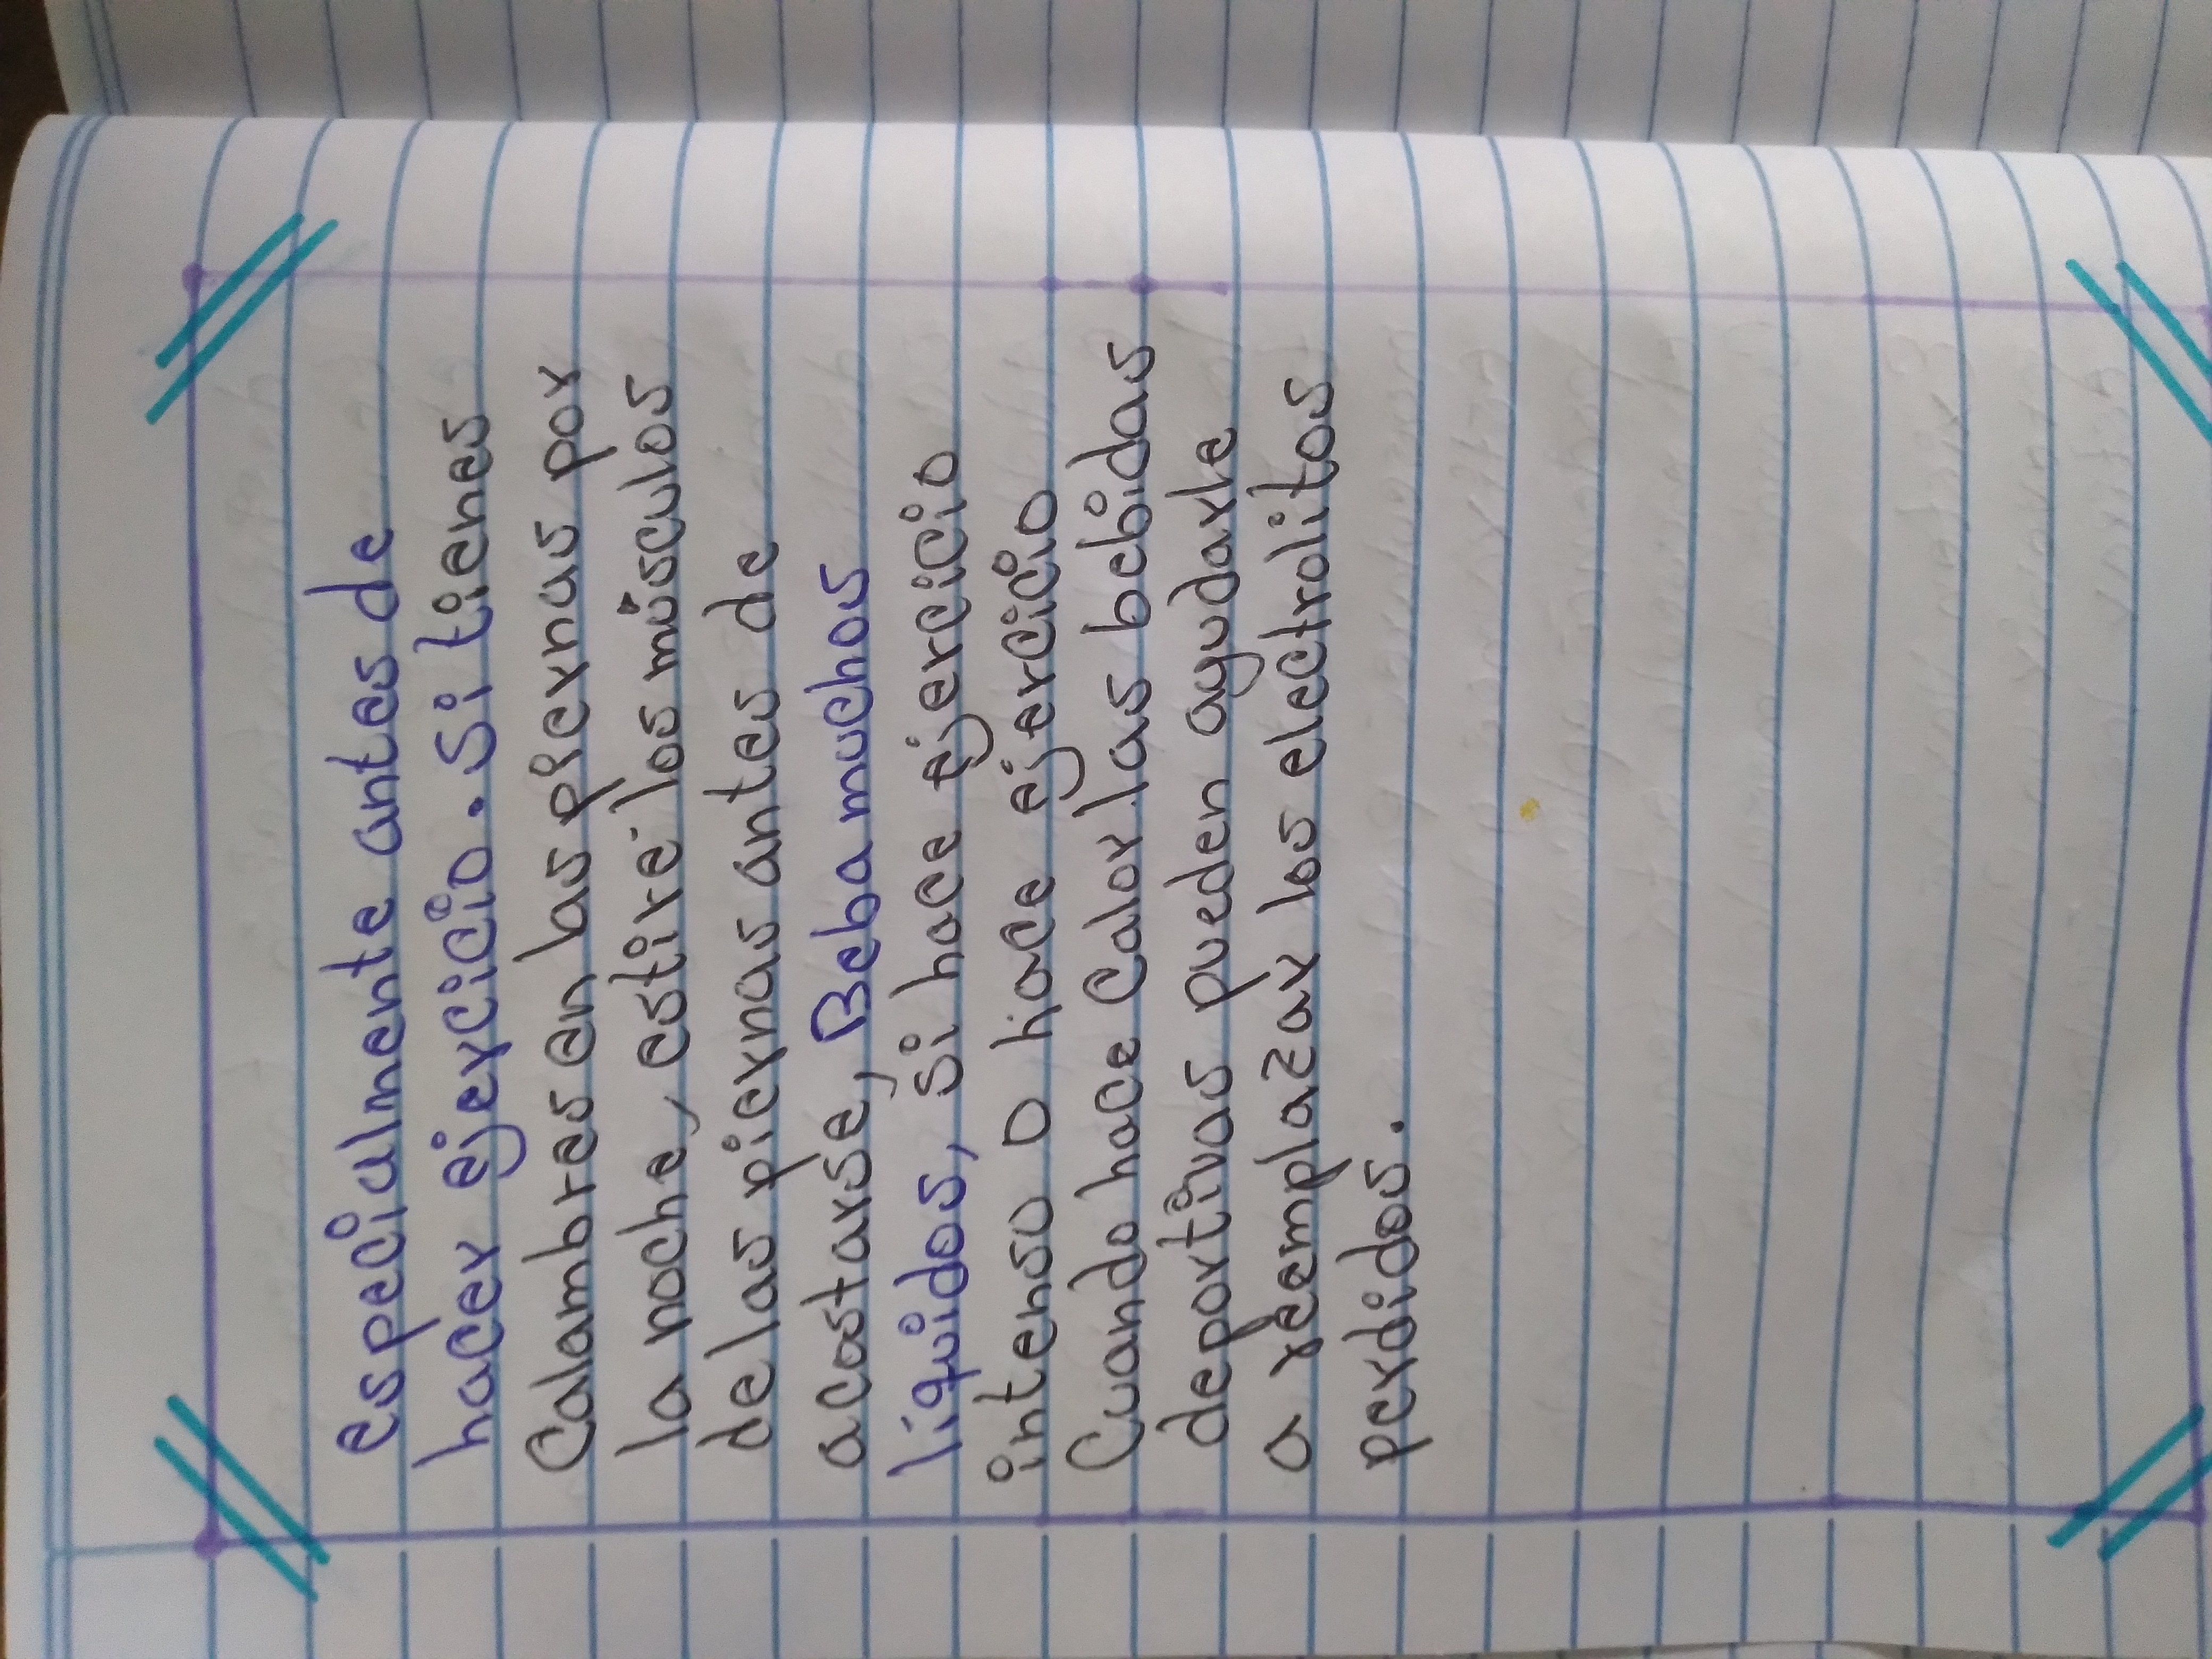 especialmente antes de
hacer ejercicio. Si tienes
Calambres en las piernas por
la noche, estire los músculos
de las piernas antes de
acostarse, Beba muchos
liquidos, si hace ejercicio
intenso o hace ejercicio
Cuando hace Calor las bebidas
deportivas pueden ayudarle
a reemplazar los electrolitos
perdidos.